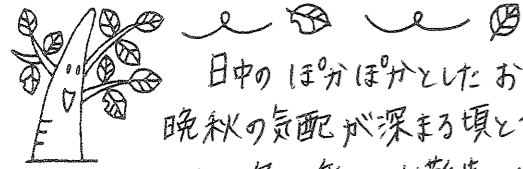 日中のぽかぽかとしたお
晩秋の気配が深まる頃と